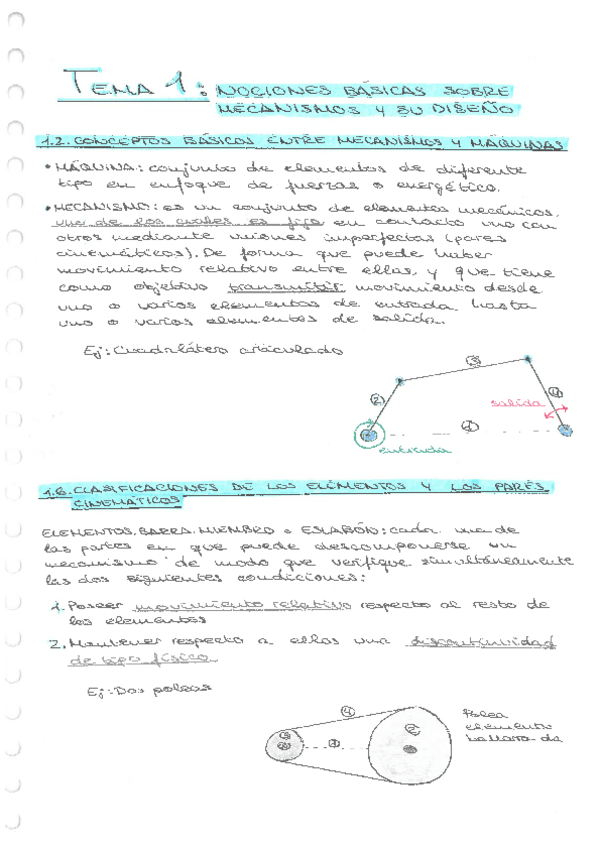 TEMA 1: NOCIONES BÁSICAS SOBRE
MECANISMOS Y SU DISEÑO
1.2. CONCEPTOS BÁSICOS ENTRE MECANISMOS Y MÁQUINAS
• MÁQUINA: conjunto de elementos de diferente
tipo en enfoque de fuerzas o energético.
• MECANISMO: es un conjunto de elementos mecánicos,
uno de los cuales es fijo en contacto uno con
otros mediante uniones imperfectas (pares
cinemáticos). De forma que puede haber
movimiento relativo entre ellas, y que tiene
como objetivo transmitir movimiento desde
uno o varios elementos de entrada hasta
uno o varios elementos de salida.
Ej: Cuadrilátero articulado
3
2
4
salida
1
entrada
1.6. CLASIFICACIONES DE LOS ELEMENTOS Y LOS PARES
CINEMÁTICOS
ELEMENTOS, BARRA, MIEMBRO o ESLABÓN: cada una de
las partes en que puede descomponerse un
mecanismo de modo que verifique simultáneamente
las dos siguientes condiciones:
1. Poseer movimiento relativo respecto al resto de
los elementos
2. Mantener respecto a ellos una discontinuidad
de tipo físico
Ej: Dos poleas
4
3
1
2
Polea
elemento